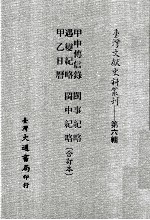 臺灣文献史料叢刊 第六輯
甲申傳信錄 閩事紀略
遇變紀略 閩中紀略 (合訂本)
甲乙日曆
臺灣大通書局印行